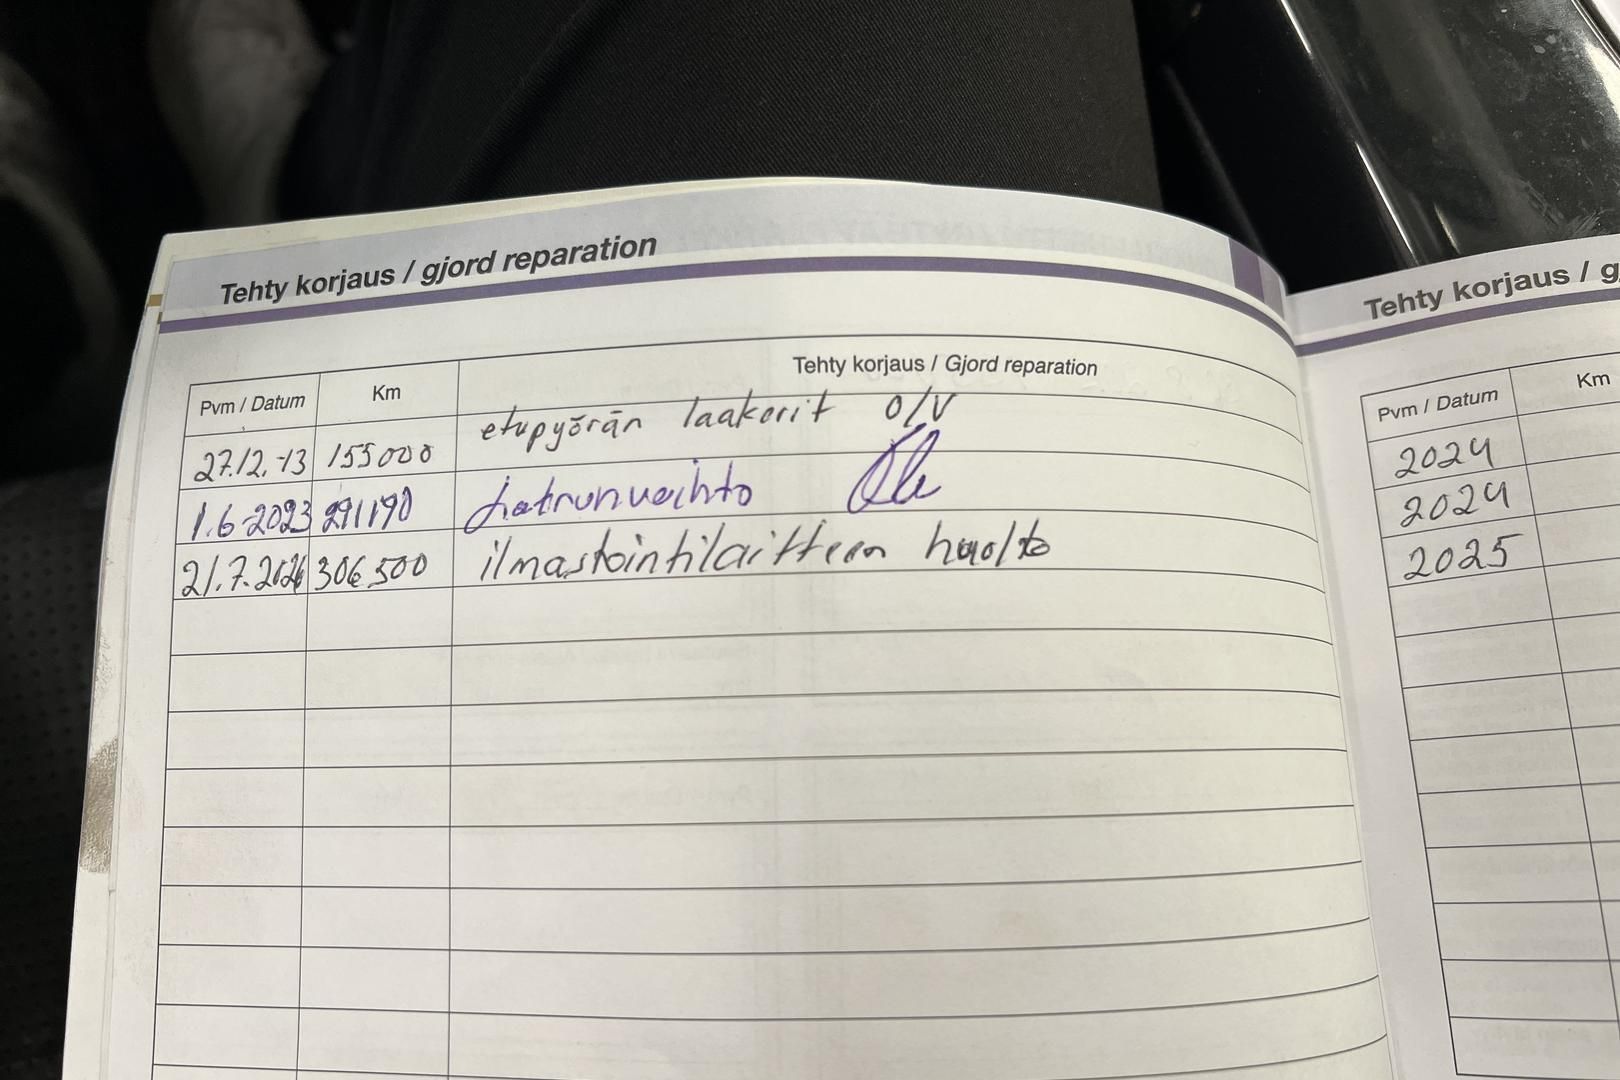 Tehty korjaus / gjord reparation
Pvm / Datum Km Tehty korjaus / Gjord reparation
27.12.-13 155000 etupyörän laakerit O/V
1.6-2023 291190
306500 ilmastointilaitteen huolto
Tehty korjaus / g
Pvm / Datum Km
2024
2024
2025